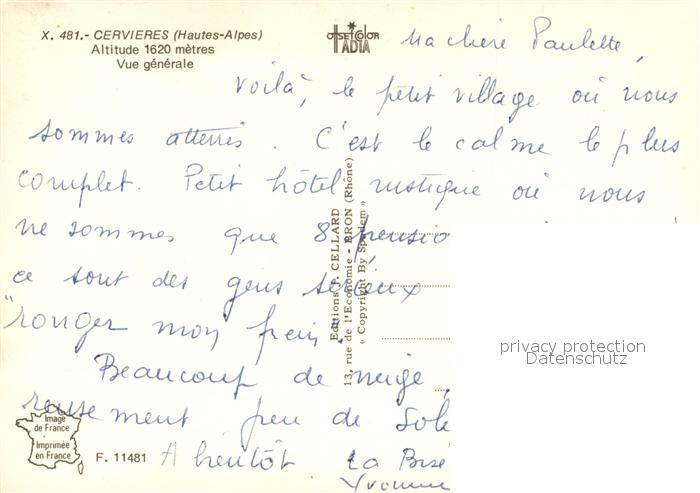 X. 481.- CERVIERES (Hautes-Alpes)
Altitude 1620 mètres
Vue générale
OFFSETCOLOR
IADIA
Ma chère Paulette,
Voilà, le petit village où nous
sommes atterris. C'est le calme le plus
complet. Petit hôtel rustique où nous
ne sommes que 8 pensio
ce sont des gens sérieux
"ronger mon frein
Beaucoup de neige,
reusement peu de Sole
A bientôt La Bise
Yvonne
Editions J. CELLARD
13, rue de l'Economie - BRON (Rhône)
« Copyright By Spadem »
Image
de France
Imprimée
en France
F. 11481
privacy protection
Datenschutz